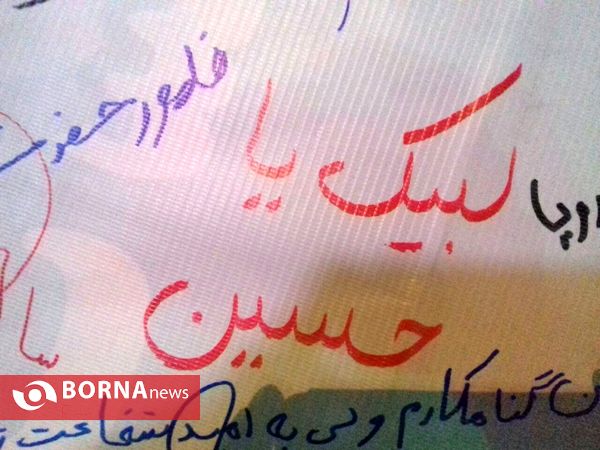 ظهور حضرت
لبیک یا
حسین
گناهکارم ولی به امید شفاعت
BORNA news